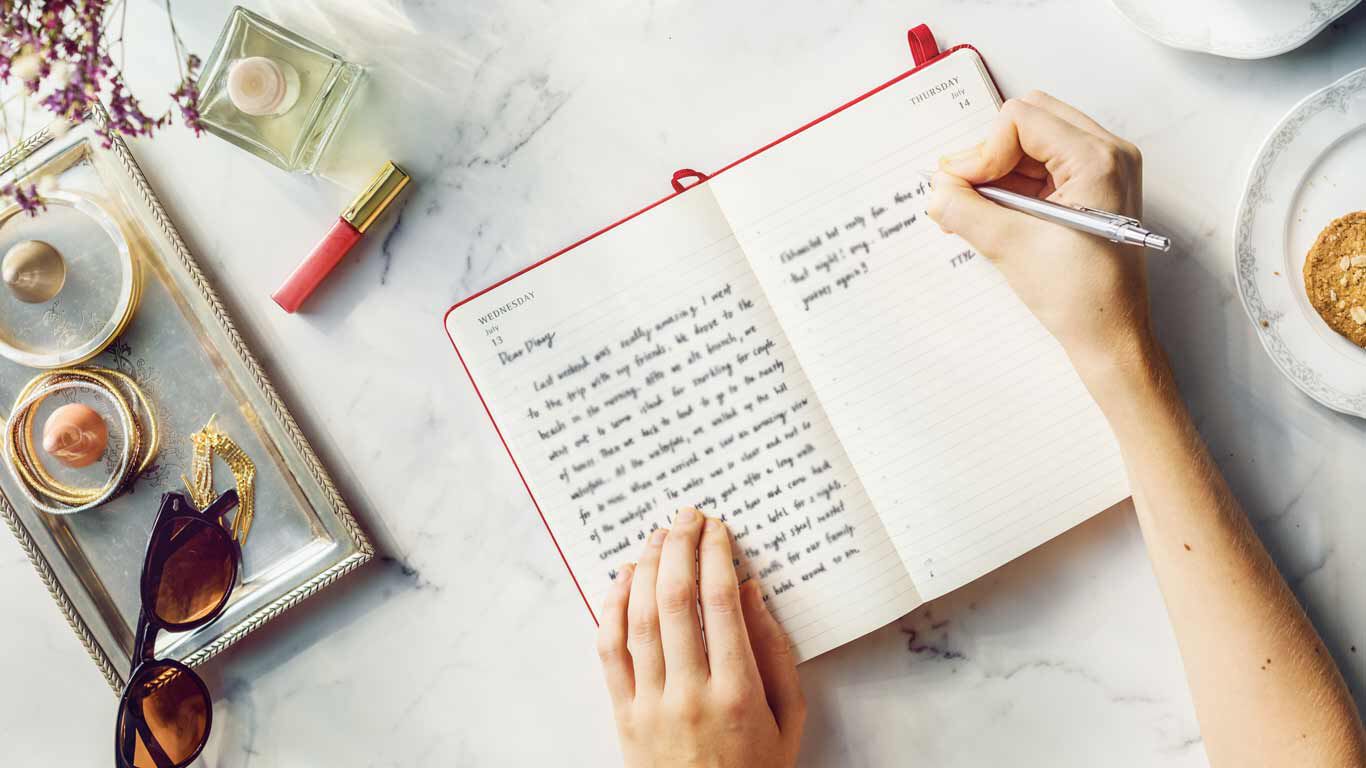 WEDNESDAY
July
13
Dear Diary
Last weekend was really amazing. I went
to the trip with my friends. We drove to the
beach in the morning. After we ate brunch, we
went out to some island for snorkling for couple
of hours. Then we back to land to go to the nearby
waterfall. At the waterfall, we walked up the hill
for 30 mins. When we arrived, we saw an amazing view
of the waterfall! The water was so clear and not so
crowded at all good after a long walk
an hour and came back
a hotel for 2 nights
the night street market
for our family.
hotel around 10 pm.
THURSDAY
July
14
Exhausted but really fun. three of
that night! omg.. Tomorrow
journey again!!
TTYL